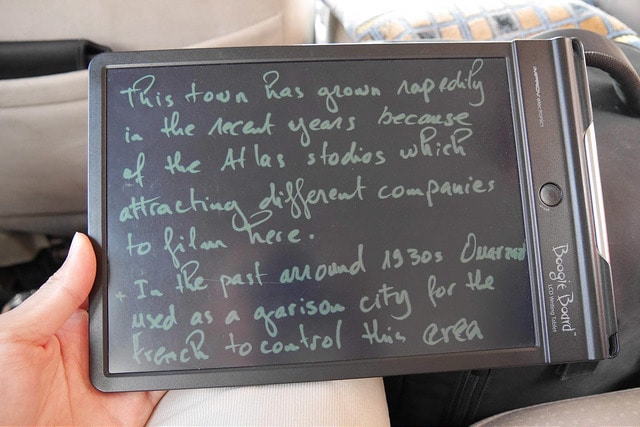 This town has grown rapedily
in the recent years because
of the Atlas studios which
attracting different companies
to film here.
+ In the past around 1930s Ouarzad
used as a garison city for the
French to control this erea
IMPROV electronics
Boogie Board™
LCD Writing Tablet